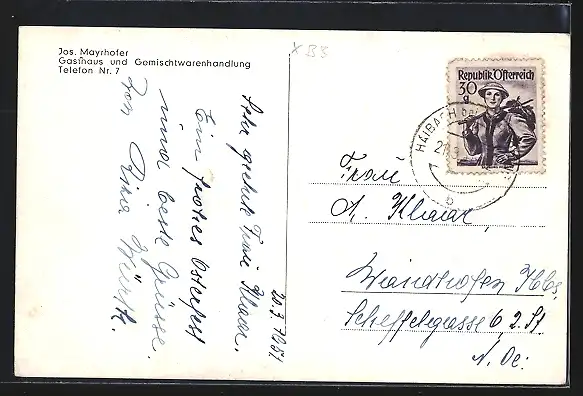 Jos. Mayrhofer
Gasthaus und Gemischtwarenhandlung
Telefon Nr. 7
XB3
Republik Österreich
30
g
HAIBACH
b
20.3.1951
Sehr geehrte Frau Klaar.
Ein frohes Osterfest
und beste Grüsse.
von
Frau
A. Klaar,
Waidhofen Ybbs,
Scheffelgasse 6 2. St
N. Oe.